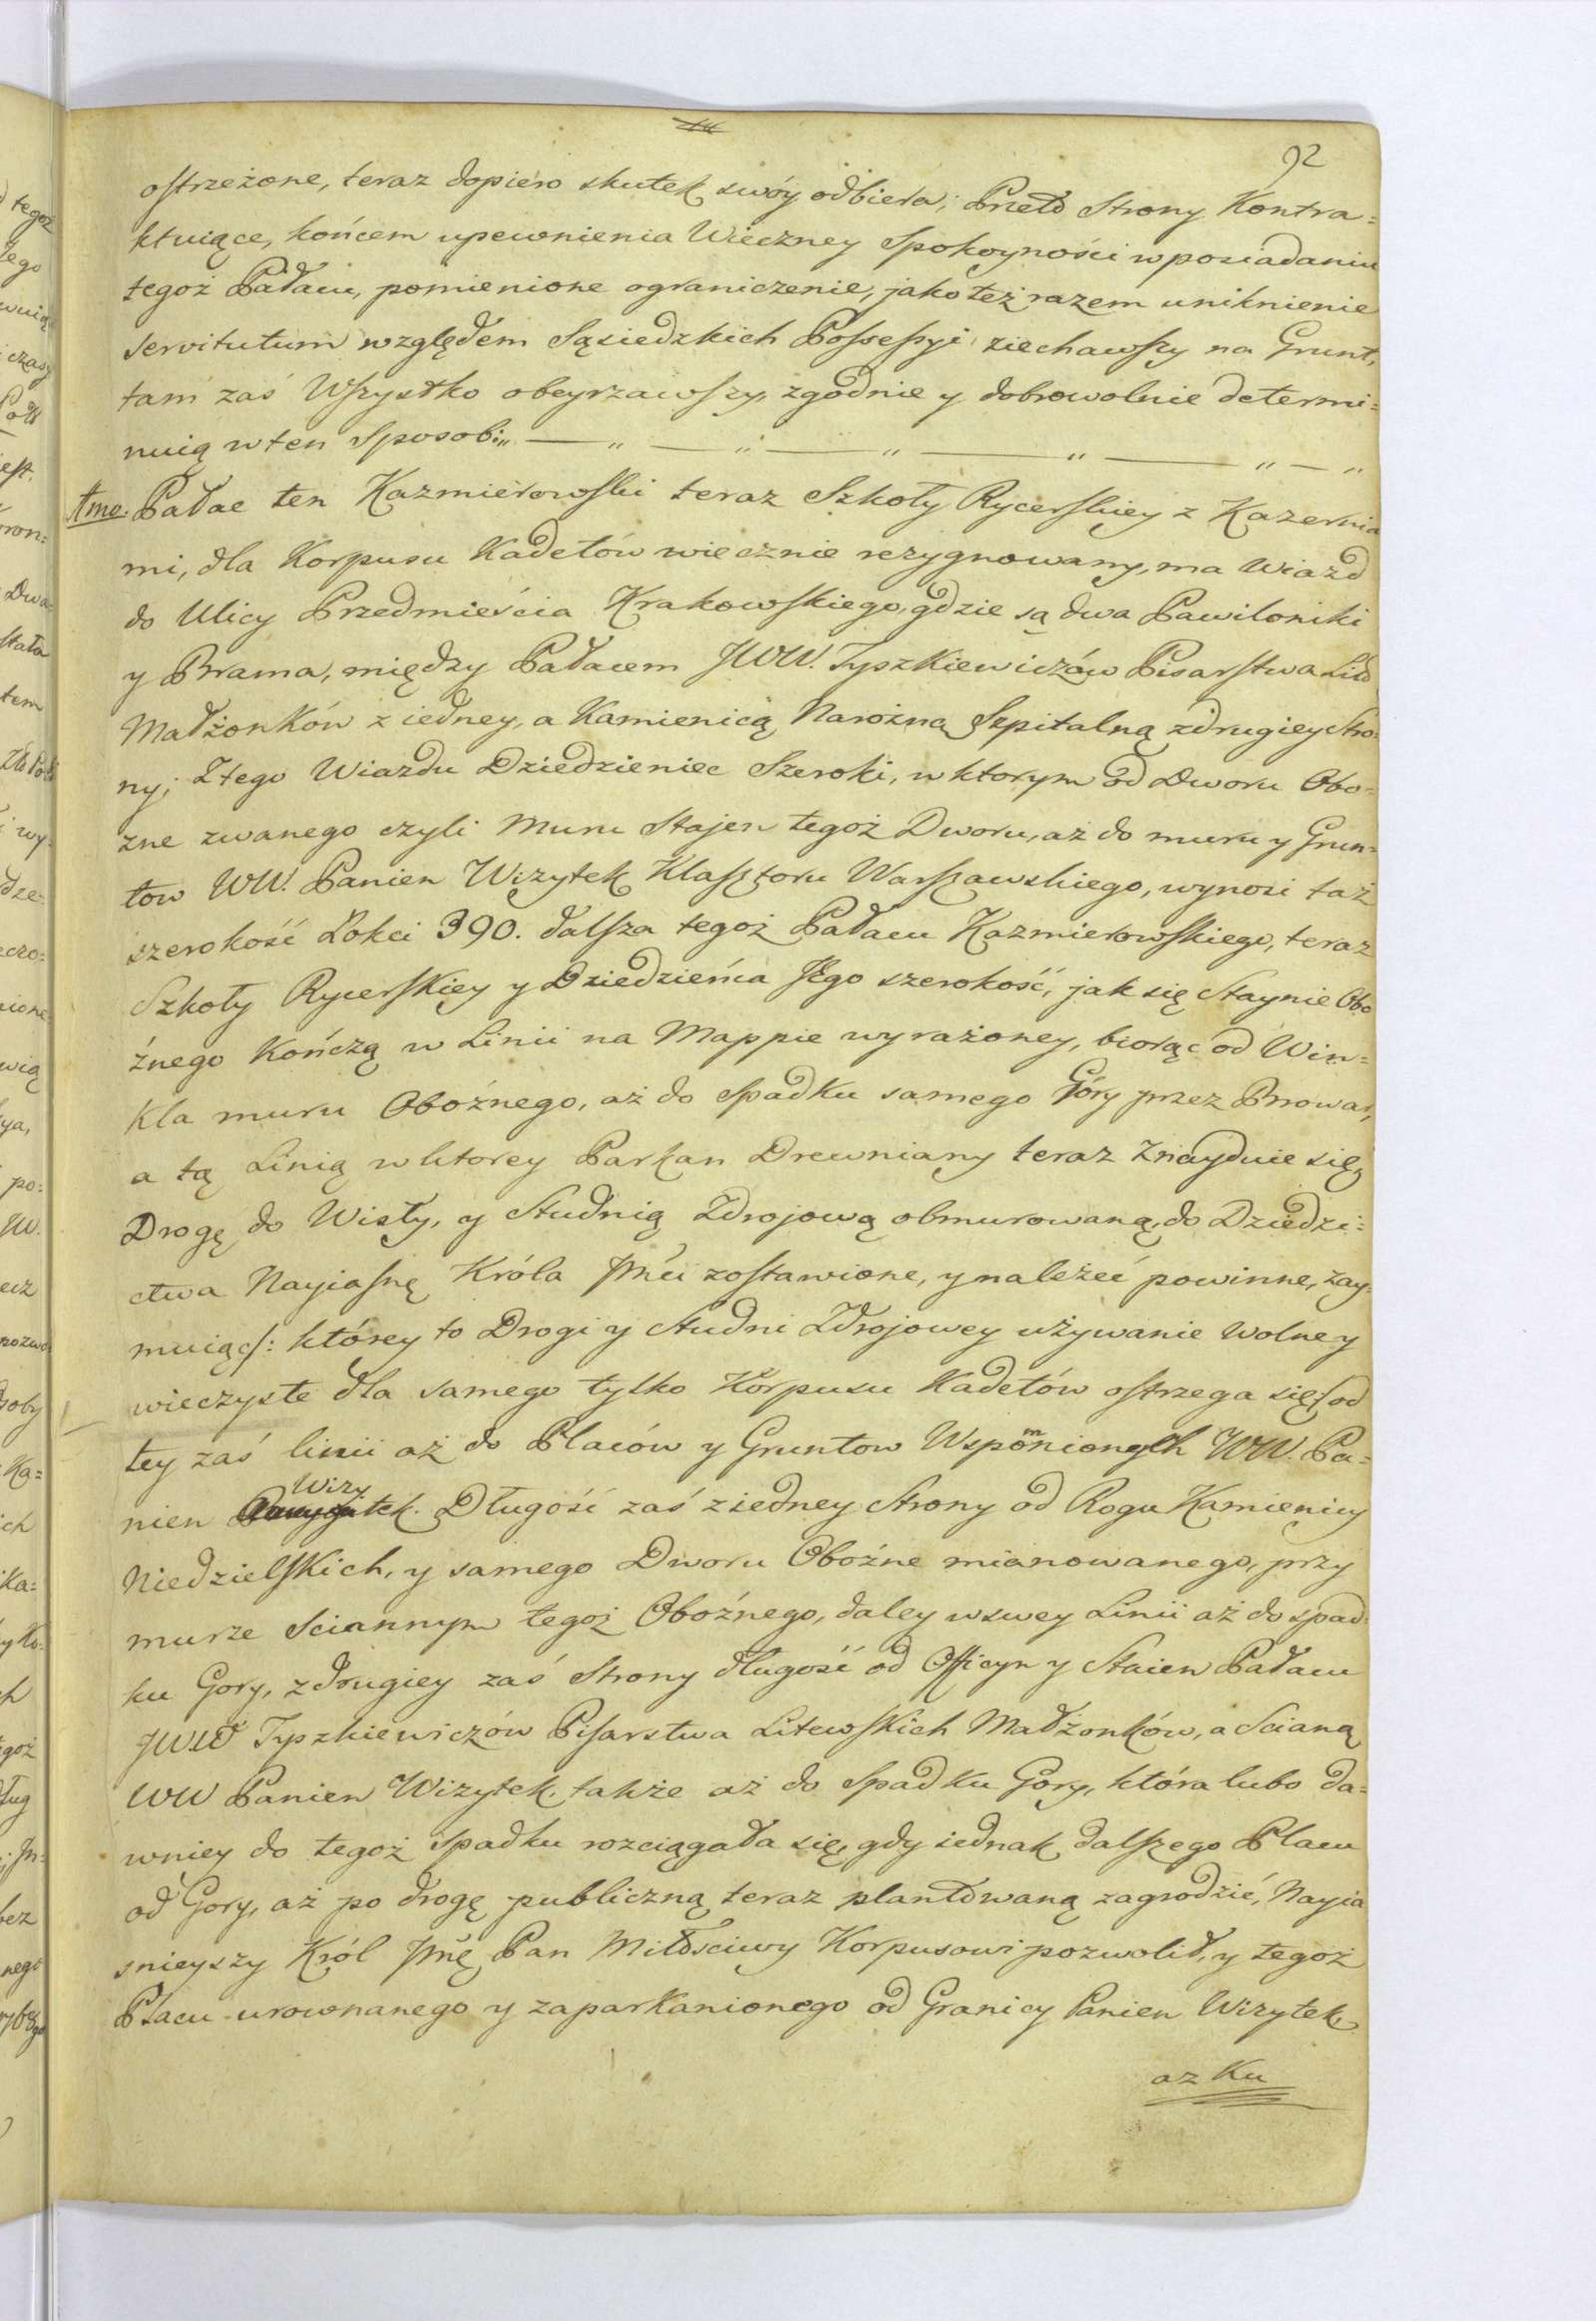 92
ostrzeżone, teraz dopiéro skutek swóy odbiera; Przeto Strony Kontra=
ktuiące, końcem upewnienia Wieczney Spokoyności w posiadaniu
tegoż Pałacu, pomienione ograniczenie, jako też razem uniknienie
servitutum względem Sąsiedzkich Possessyi ziechawszy na Grunt,
tam zaś Wszystko obeyrzawszy, zgodnie y dobrowolnie determi=
nuią w ten Sposob:„ — „ — „ — „ — „ — „ — „
1mo. Pałac ten Kazmierowski teraz Szkoły Rycerskiey z Kazerna
mi, dla Korpusu Kadetów wiecznie rezygnowany, ma Wiazd
do Ulicy Przedmieścia Krakowskiego, gdzie są dwa Pawiloniki
y Brama, między Pałacem JWW. Tyszkiewiczów Pisarstwa Litt
Małżonków z iedney, a Kamienicą Narożną Szpitalną z drugiey Stro=
ny; Z tego Wiazdu Dziedzieniec Szeroki, w ktorym od Dworu Obo=
zne zwanego czyli Muru Stajen tegoż Dworu, aż do muru y Grun=
tow WW. Panien Wizytek Klasztoru Warszawskiego, wynosi taż
szerokość Łokci 390. dalsza tegoż Pałacu Kazmierowskiego, teraz
Szkoły Rycerskiey y Dziedzieńca Jego szerokość, jak się Staynie Obo
źnego Kończą w Linii na Mappie wyrażoney, biorąc od Win=
kla muru Oboźnego, aż do spadku samego Góry przez Browar,
a tą Linią w ktorey Parkan Drewniany teraz Znayduie się,
Drogę do Wisły, y Studnią Zdrojową obmurowaną, do Dziedzi=
ctwa Nayiasnę Króla Jmći zostawione, y należeć powinne, zay=
muiąc /: którey to Drogi y Studni Zdrojowey używanie Wolne y
wieczyste dla samego tylko Korpusu Kadetów ostrzega się :/ od
tey zaś linii aż do Placów y Gruntow Wspomnionych WW. Pa=
nien Wizytek. Długość zaś z iedney Strony od Rogu Kamienicy
Niedzielskich, y samego Dworu Oboźne mianowanego, przy
murze Sciannym tegoż Oboźnego, daley w swey Linii aż do spad=
ku Gory, z drugiey zaś Strony długość od Officyn y Staien Pałacu
JWW Tyszkiewiczów Pisarstwa Litewskich Małżonków, a Scianą
WW Panien Wizytek, także aż do Spadku Gory, która lubo da=
wniey do tegoż Spadku rozciągała się, gdy iednak dalszego Placu
od Gory, aż po drogę publiczną teraz plantowaną zagrodzić, Nayia
snieyszy Król Jmć Pan Miłościwy Korpusowi pozwolił, y tegoż
Placu urownanego y zaparkanionego od Granicy Panien Wizytek
az Ku